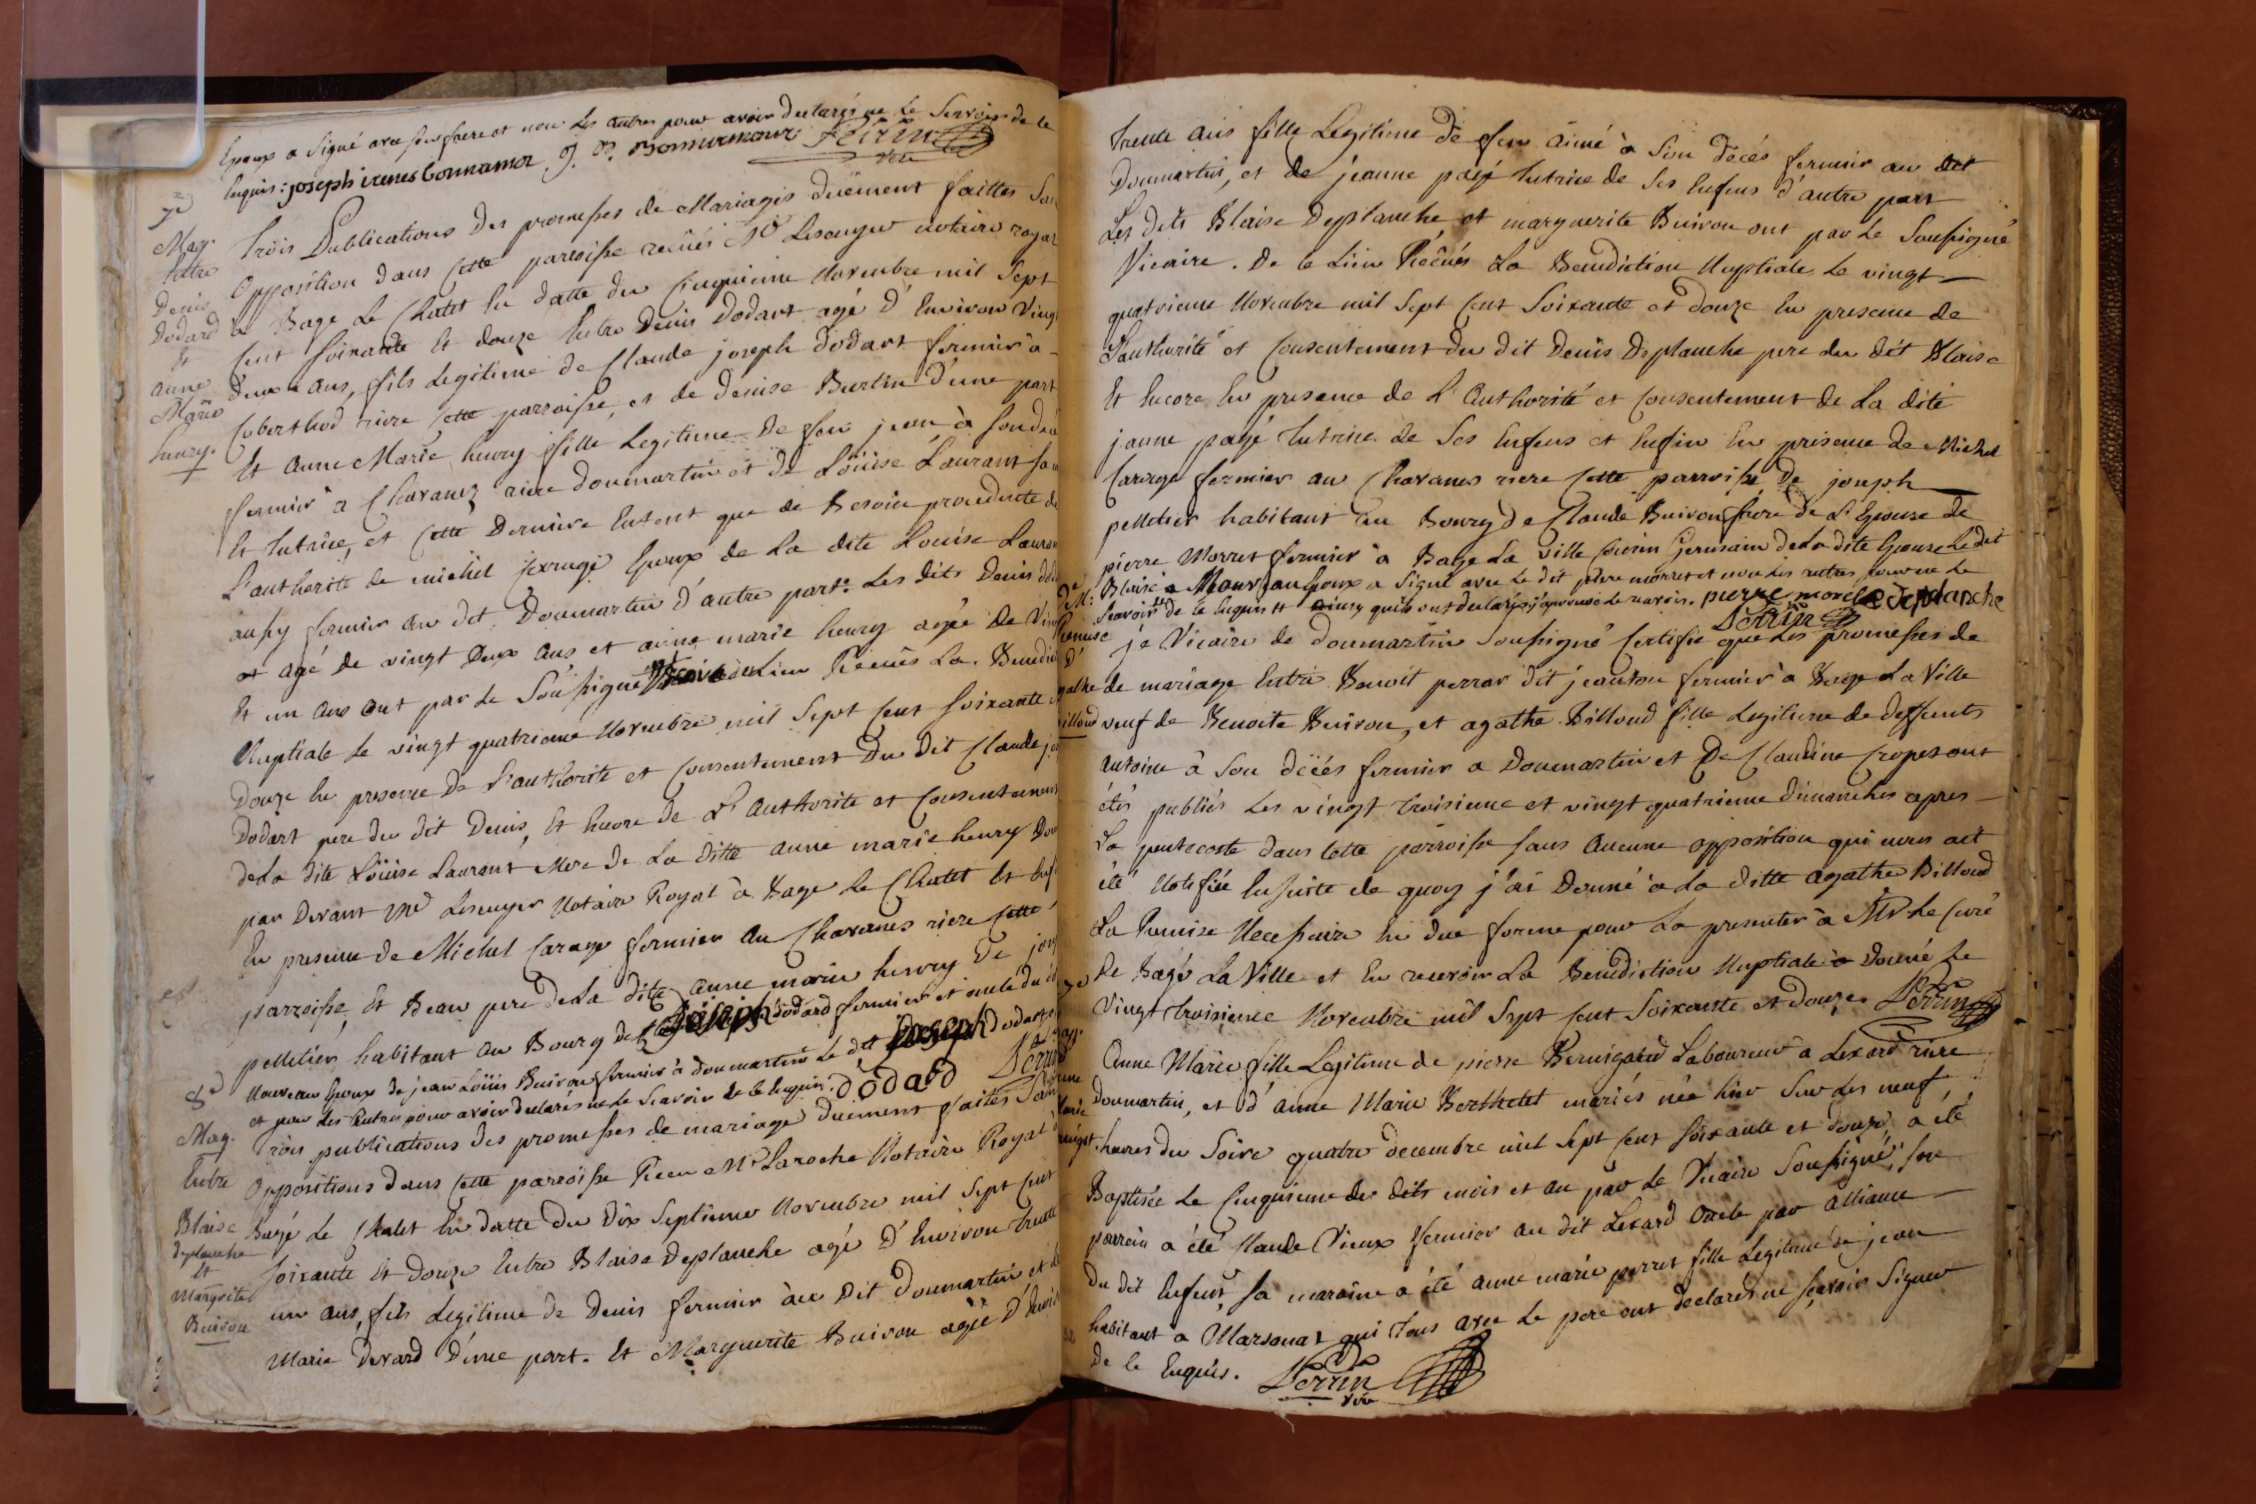 Epoux a signé avec son frere et non les autres pour avoir declarés ne le scavoir de ce
Enquis: joseph irenes bonnamor, J. P. Bonnamour Perrin
vic
7e
Mag.
Entre
Denis
Dodard
Et
anne
Marie
henry.
Trois Publications des promesses de Mariages düement faittes San
Opposition dans Cette parroisse recües Me Lescuyer notaire royal
a Bage Le Chatel En datte du Cinquieme Novembre mil Sept
Cent soixante Et douze Entre Denis Dodart agé d'Environ Ving
deux ans, fils Legitime de Claude joseph Dodart fermier a
riere Cette parroisse, et de Denise Burtin d'une part
Et anne Marie henry fille Legitime De feu jean à son de
fermier a Chavanes riere doumartin et de Loüise Laurant
Et tutrice, et Cette Derniere Entent que de Besoin procedente de
L'authorité de michel Epoux de La dite Louise Lauran
aussy fermier au dit Doumartin d'autre part. Les dits Denis dod
agé de vingt deux ans et anne marie henry agée De Vin
Et un ans ont par le Soussigné Vicaire Recües La Benedic
Nuptiale le vingt quatrieme Novembre mil Sept Cent soixante
douze En presence De L'authorité et Consentement Du dit Claude jo
Dodart pere du dit Denis, Et Encore de L'authorité et Consentement
de La dite Loüise Laurant Mere de La ditte anne marie henry
par devant Me Lescuyer Notaire Royal à Bage Le Chatel Et
En presence de Michel Carage fermier au Chavanes riere Cette
parroisse, Et Beau pere de La dite anne marie henry De jos
pelletier habitant au Bourg de joseph Dodard fermier et oncle du d
nouveau Epoux de jean Loüis Buiron fermier à doumartin le dit joseph dodart
et pour les autres pour avoir declarés ne Le Scavoir de ce Enquis. dodard Perrin
8e
Mag.
Entre
Blaise
deplanche
Et
Margrite
Buiron
Trois publications des promesses de mariage duement faites San
Oppositions dans Cette parroisse Receu Me Laroche Notaire Royal
Bagé Le Chatel En datte du dix Septieme Novembre mil Sept Cent
soixante Et douze Entre Blaise Deplanche agé d'Environ trente
un ans, fils Legitime de Denis fermier au dit Doumartin et de
Marie Devard d'une part. Et Marguerite Buiron agée d'Envir
trente ans fille Legitime de feu aimé à Son décés fermier au dit
Doumartin, et de jeanne pagé tutrice de Ses Enfens d'autre part
Les dits Blaise Deplanche et marguerite Buiron ont par Le Soussigné
Vicaire. De ce Lieu Recüs La Benediction Nuptiale Le vingt
quatrieme Novembre mil Sept Cent Soixante et douze En presence de
L'authorité et Consentement du dit Denis Deplanche pere du dit Blaise
Et Encore En presence de L'authorité et Consentement de La dite
jeanne pagé tutrice de Ses Enfens et Enfin En presence de Michel
Carage fermier au Chavanes riere Cette parroisse De joseph
pelletier habitant Au Bourg de Claude Buiron frere de L'Epouse de
pierre Morret fermier à Bage La ville Cousin Germain de La dite Epouse Le dit
Blaise nouveau Epoux a Signé avec le dit pierre morret et non les autres pour ne Le
Scavoir de ce Enquis ainsy qu'ils ont declarés j'aprouve pierre morel deplanche
Perrin
je Vicaire de doumartin Soussigné Certifie que Les promesses de
de mariage Entre Benoit perrar dit jeanton fermier à Bage La Ville
veuf de Benoite Buiron, et agathe Billoud fille Legitime de deffunts
antoine à Son décés fermier a Doumartin et De Claudine Cropet ont
étés publiés Les vingt troisieme et vingt quatrieme dimanches apres
La pentecoste dans Cette parroisse sans Aucune opposition qui nous ait
été Notifiée Ensuite de quoy j'ai Donné a La ditte agathe Billoud
La Remise Necessaire En due forme pour La presenter à Mr Le Curé
de Bagé La Ville et En recevoir La Benediction Nuptiale Donné Le
Vingt troisieme Novembre mil Sept Cent Soixante et douze. Perrin
Anne Marie fille Legitime de pierre Bernigaud Laboureur a Lexard riere
doumartin, et d'anne Marie Berthelet mariés née hier Sur Les neuf
heures du Soire quatre decembre mil Sept Cent soixante et douze, a été
Baptisée Le Cinquieme des dits mois et an par Le Vicaire Soussigné, son
parrein a été Claude Vieux fermier au dit Lexard Oncle par alliance
Du dit Enfent, Sa maraine a été anne marie perret fille Legitime de jean
habitant a Marsonat qui tous avec Le pere ont declarés ne Scavoir Signer
de ce Enquis. Perrin
vic